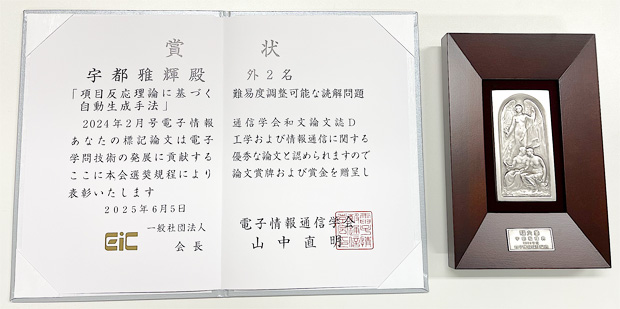 賞 状
宇都雅輝殿 外2名
「項目反応理論に基づく 難易度調整可能な読解問題
自動生成手法」
2024年2月号電子情報 通信学会和文論文誌D
あなたの標記論文は電子 工学および情報通信に関する
学問技術の発展に貢献する 優秀な論文と認められますので
ここに本会選奨規程により 論文賞牌および賞金を贈呈し
表彰いたします
2025年6月5日
一般社団法人 電子情報通信学会
EiC 会長 山中直明